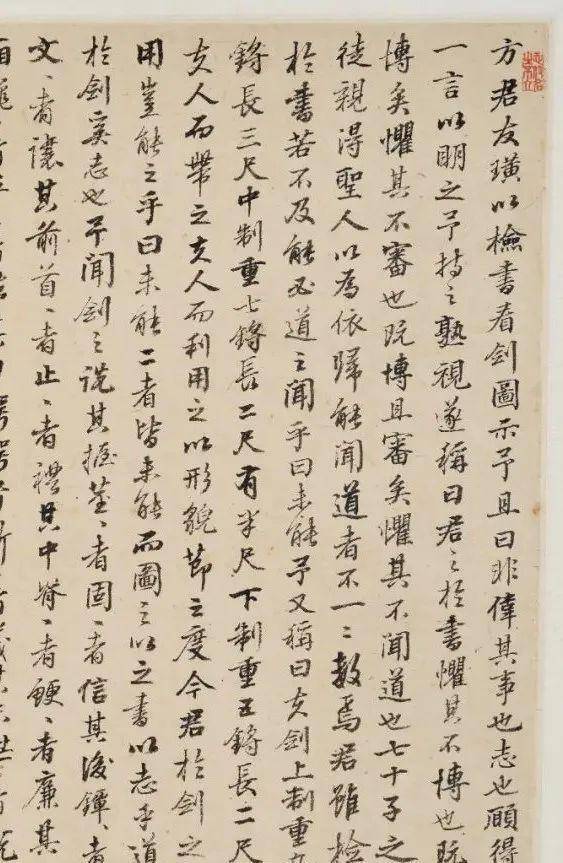 方君友璜以檢書看劍圖示予且曰非偉其事也志也願得
一言以明之予持之熟視遂稱曰君之於書懼其不博也既
博矣懼其不審也既博且審矣懼其不聞道也七十子之
徒親得聖人以為依歸能聞道者不一二數焉君雖檢
於書若不及能必道之聞乎曰未能予又稱曰夫劍上制重九
鋝長三尺中制重七鋝長二尺有半尺下制重五鋝長二尺
夫人而舉之夫人而利用之以形貌節之度今君於劍之
用豈能之乎曰未能二者皆未能而圖之以之書以志乎道
於劍奚志也予聞劍之說其握莖〻者固〻者信其後鐔〻者
文〻者讓其前首〻者止〻者禮其中脊〻者鯁〻者廉其